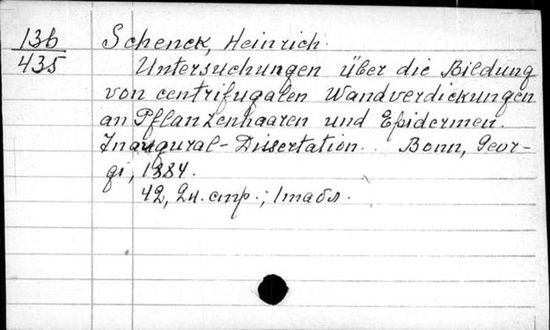 13b
435
Schenck, Heinrich.
Untersuchungen über die Bildung
von centrifugalen Wandverdickungen
an Pflanzenhaaren und Epidermen.
Inaugural-Dissertation. Bonn, Geor-
gi, 1884.
42, 2н. стр.; 1 табл.